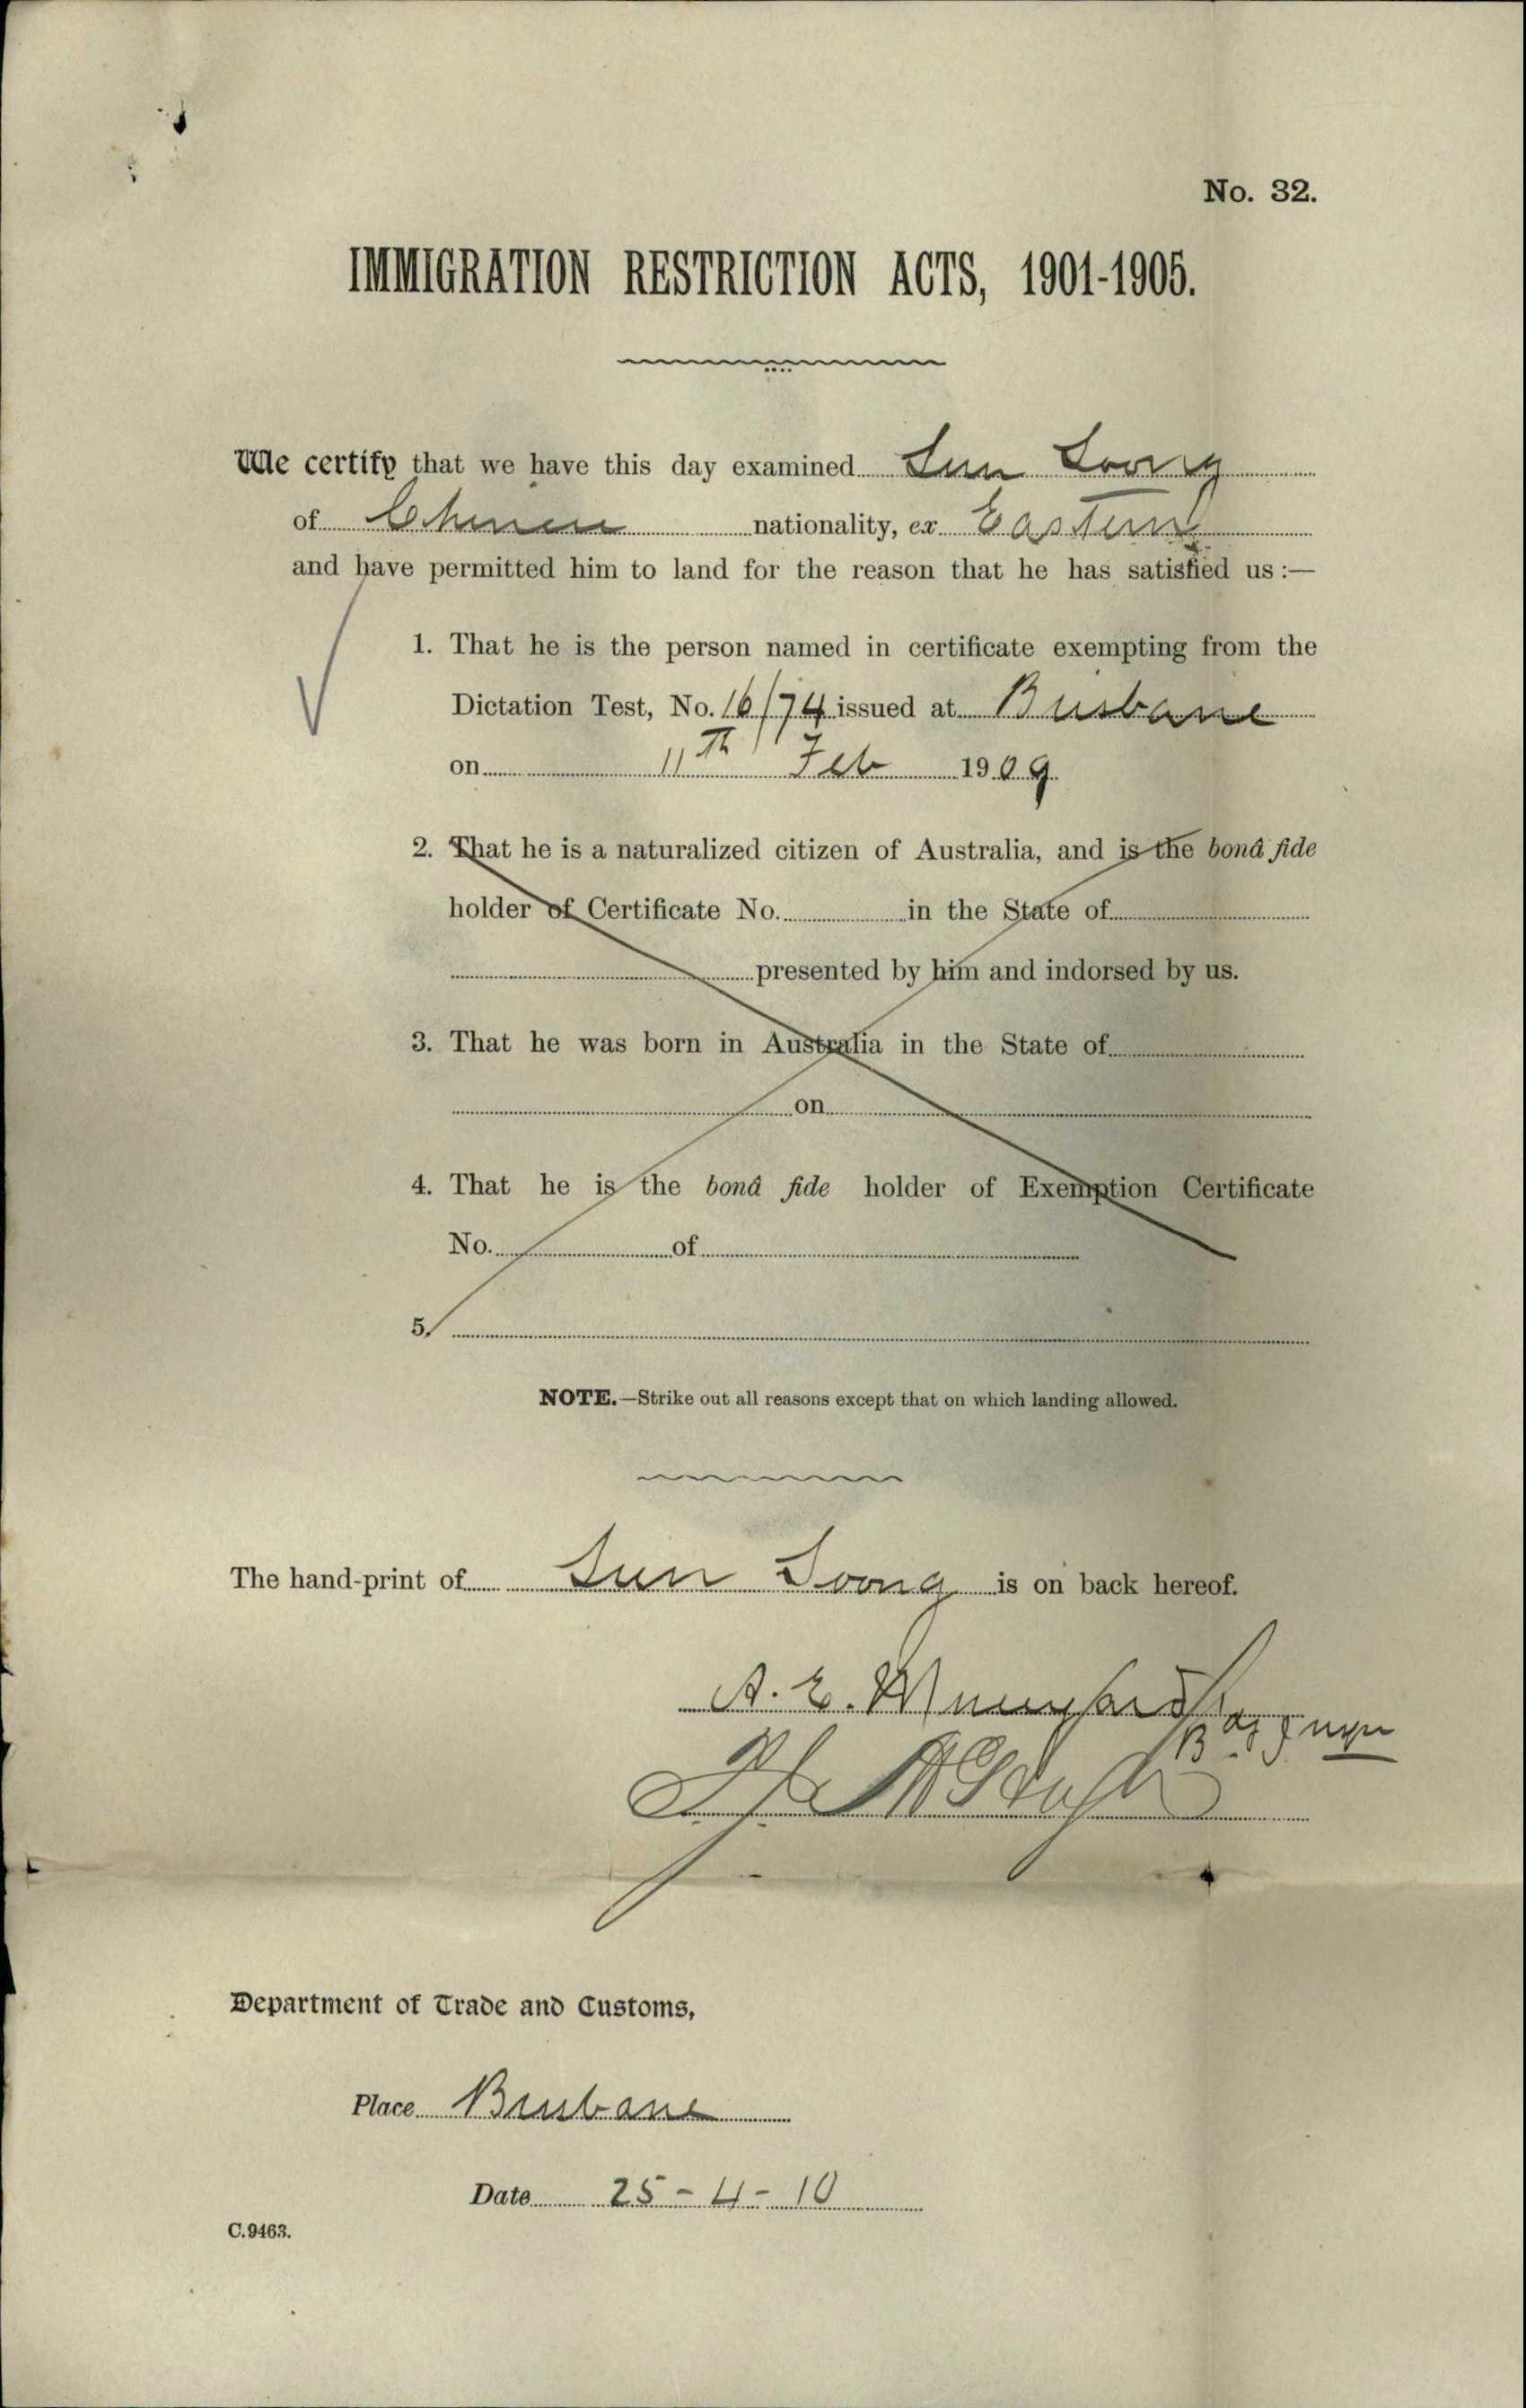 No. 32.
IMMIGRATION RESTRICTION ACTS, 1901-1905.
We certify that we have this day examined Sun Loong
of Chinese nationality, ex Eastern
and have permitted him to land for the reason that he has satisfied us:—
1. That he is the person named in certificate exempting from the
Dictation Test, No. 16/74 issued at Brisbane
on 11th Feb 1909
2. That he is a naturalized citizen of Australia, and is the bonâ fide
holder of Certificate No. in the State of
presented by him and indorsed by us.
3. That he was born in Australia in the State of
on
4. That he is the bonâ fide holder of Exemption Certificate
No. of
5.
NOTE.—Strike out all reasons except that on which landing allowed.
The hand-print of Sun Loong is on back hereof.
A. E.
Department of Trade and Customs,
Place Brisbane
Date 25-4-10
C.9463.